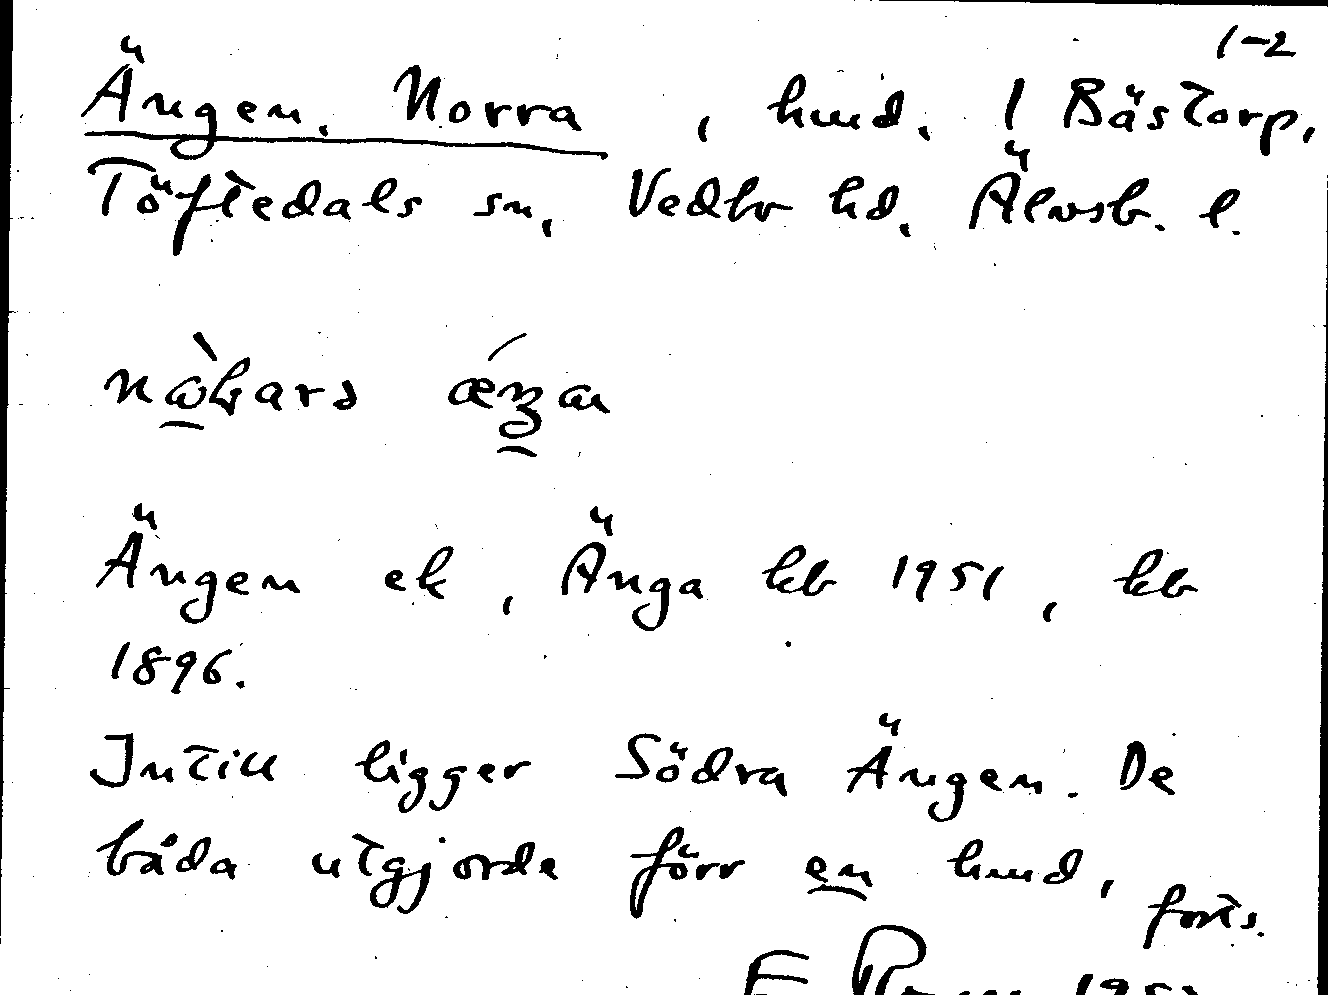 1-2
Ängen, Norra , hmd. i Bästorp,
Töftedals sn, Vedbo hd, Älvsb. l.
Ängen ek, Änga kb 1951, kb
1896.
Intill ligger Södra Ängen. De
båda utgjorde förr en hmd,
forts.